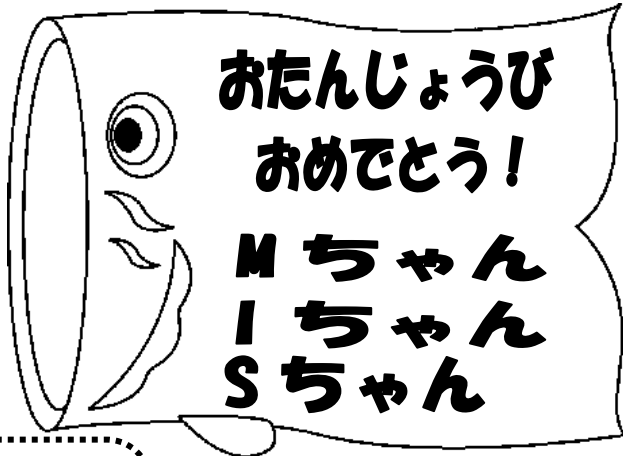 おたんじょうび
おめでとう！
Mちゃん
Iちゃん
Sちゃん